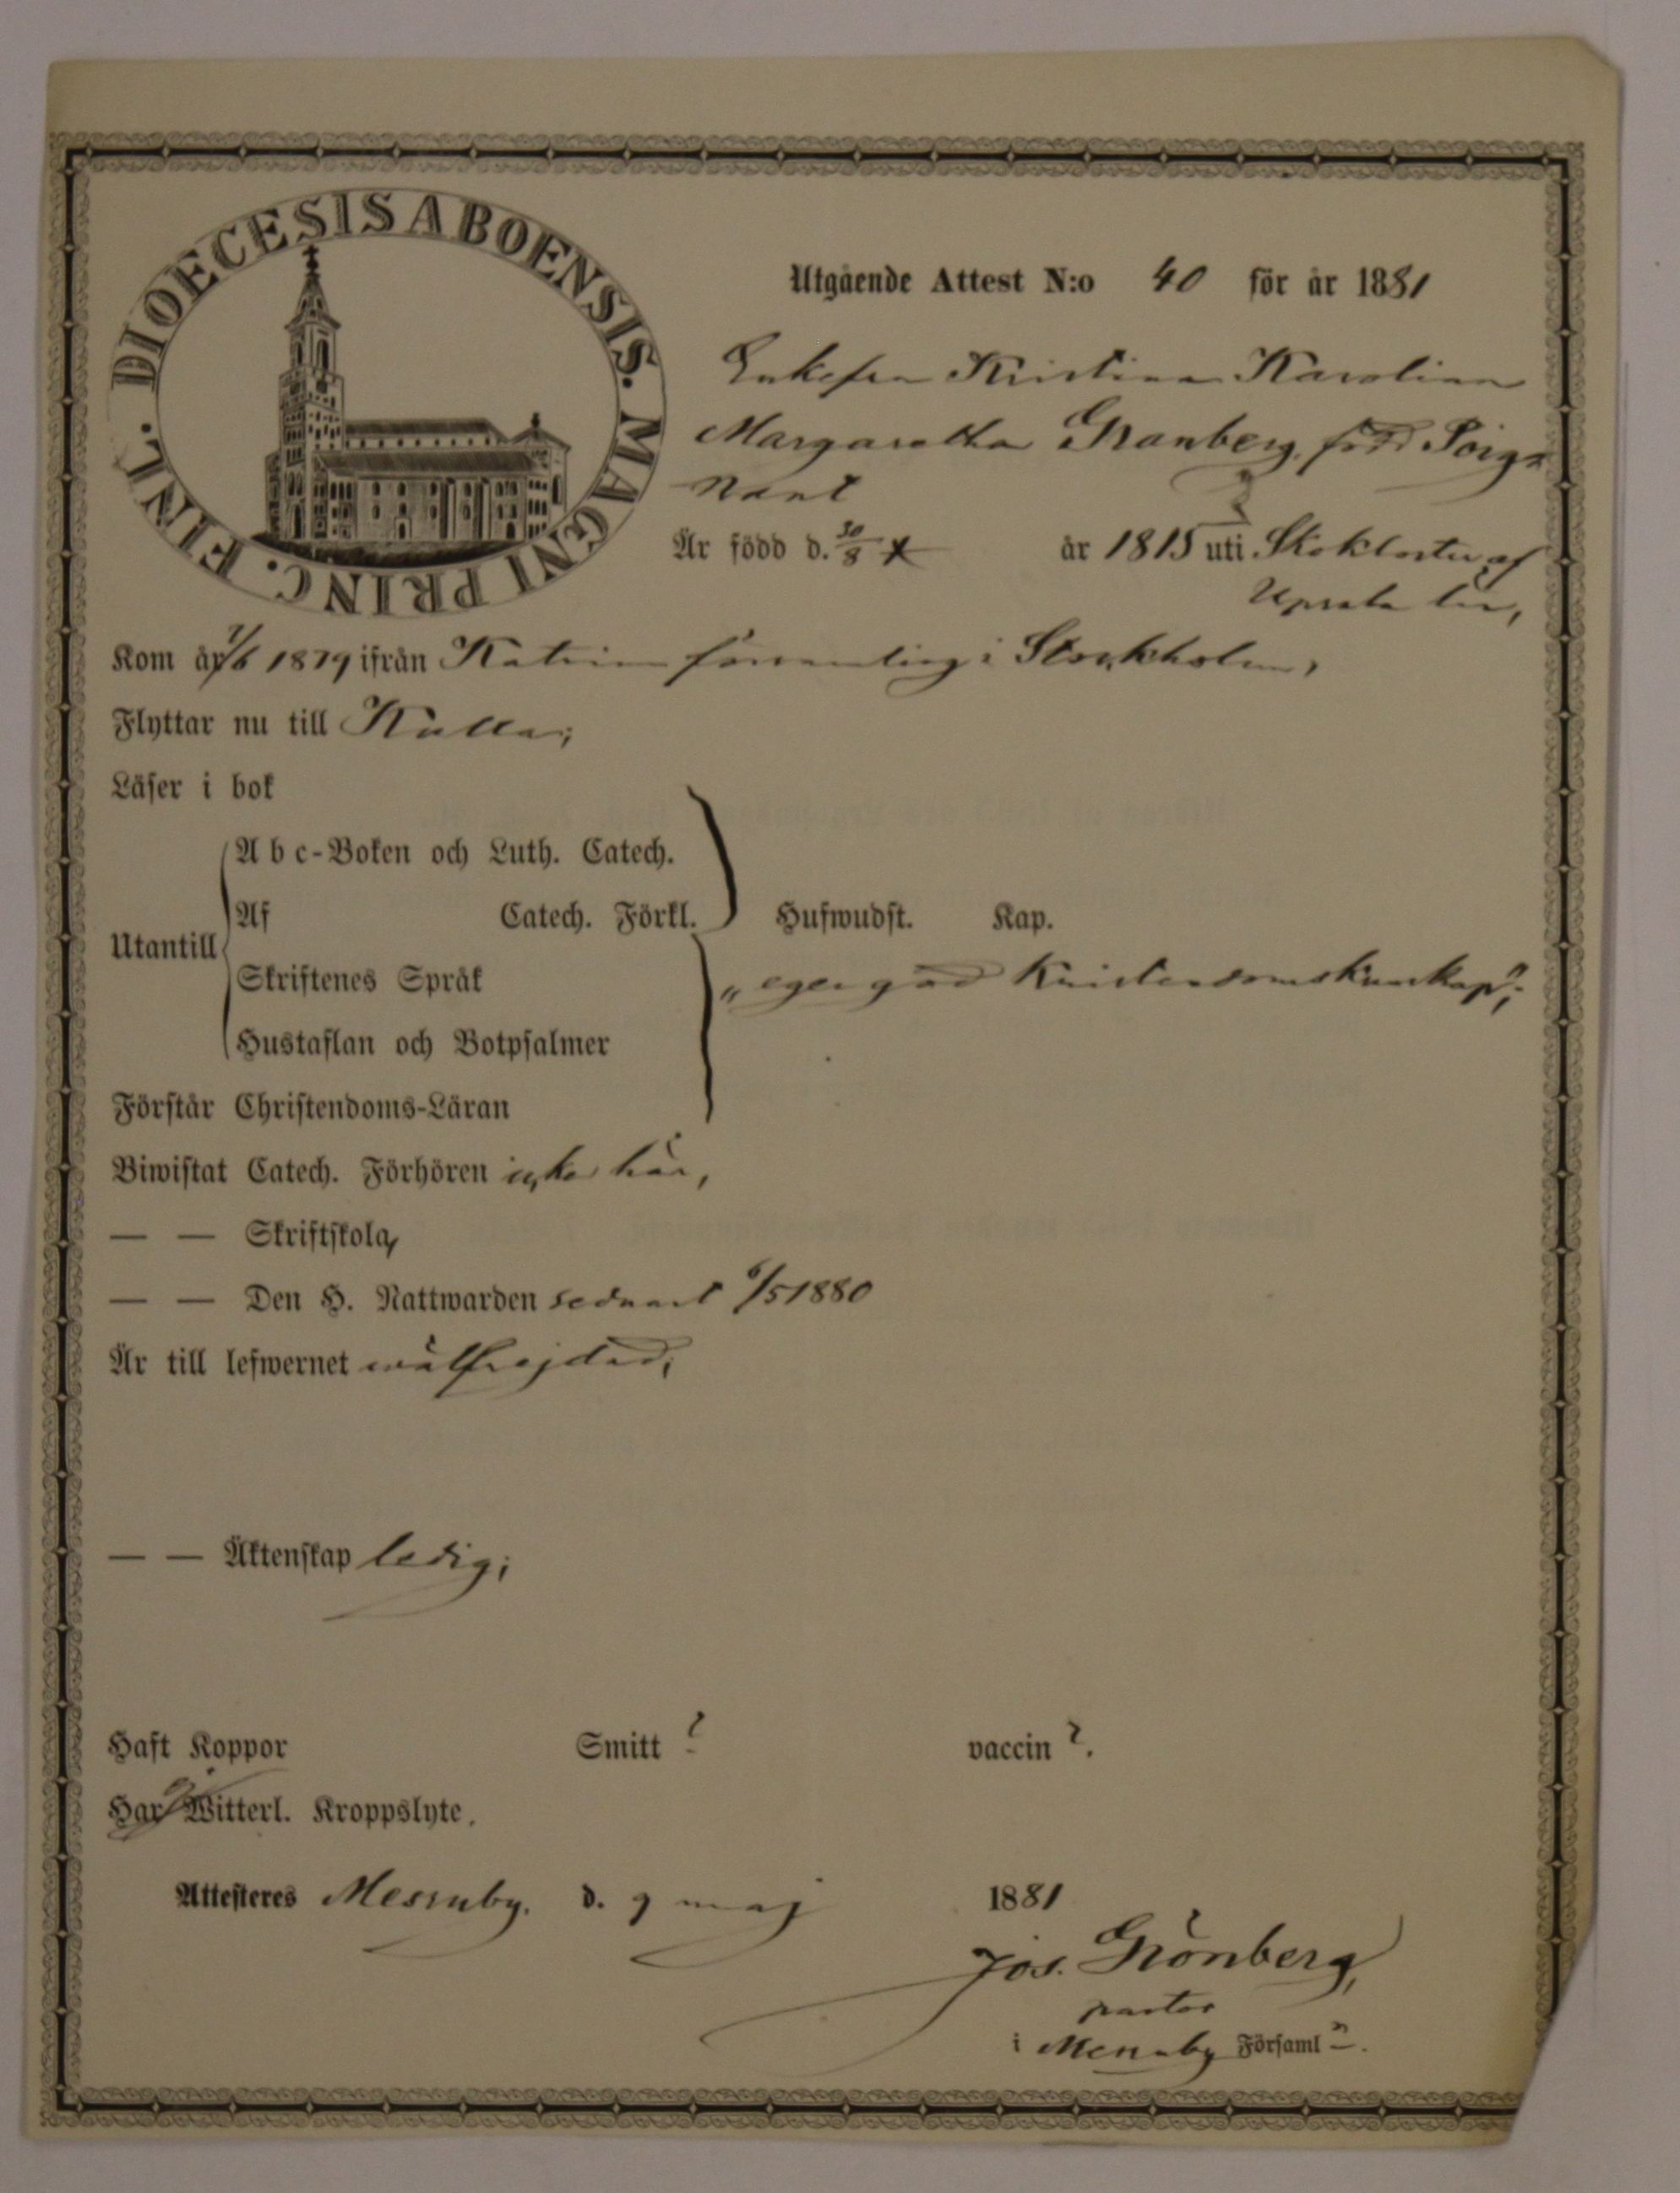 DIOECESIS ABOENSIS. MAGNI PRINC. FINL.
Utgående Attest N:o 40 för år 1881
Enkefru Kristina Karolina
Margaretha Granberg, född Poig-
nant
Är född d. 30/8 år 1815 uti Skokloster af
Upsala län,
Kom år 7/6 1879 ifrån Katrina församling i Stockholm,
Flyttar nu till Kulla;
Läser i bok
Abc-Boken och Luth. Catech.
Af Catech. Förkl. Hufwudst. Kap.
Utantill
Skriftenes Språk „eger god Kristendomskunskap";
Hustaflan och Botpsalmer
Förstår Christendoms-Läran
Biwistat Catech. Förhören icke här,
— — Skriftskola,
— — Den H. Nattwarden sednast 6/5 1880
Är till lefwernet wälfrejdad;
— — Äktenskap ledig;
Haft Koppor Smitt ? vaccin ?.
Har Witterl. Kroppslyte.
Attesteres Messuby. d. 9 maj 1881
Jos. Grönberg,
pastor
i Messuby Församl n.